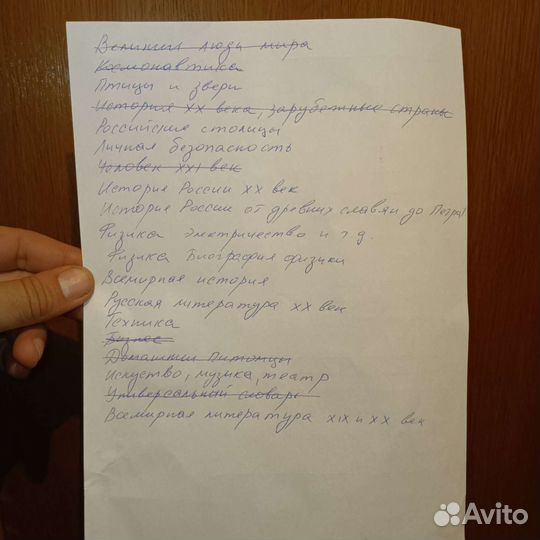 Великии люди мира
Космонавтика
Птицы и звери
История XX века, зарубежные страны
Российские столицы
Личная безопасность
Человек XXI век
История России XX век
История России от древних славян до Петра I
Физика Электричество и т.д.
Физика Биография физики
Всемирная история
Русская литература XX век
Техника
Бизнес
Домашнии питомцы
Искуство, музыка, театр
Универсальный словарь
Всемирная литература XIX и XX век
Avito